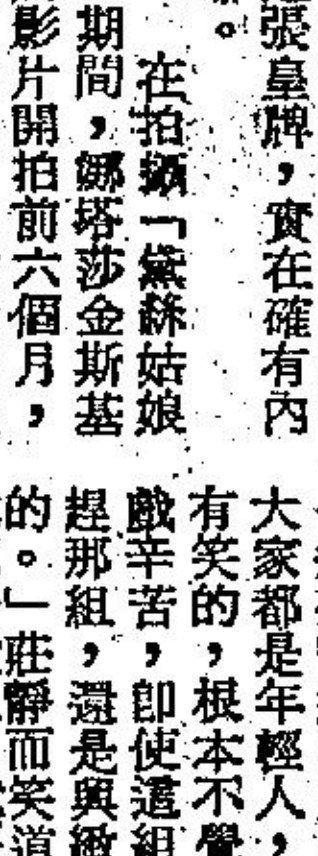 張皇牌，實在確有內
。
在拍攝「黛絲姑娘
期間，娜塔莎金斯基
影片開拍前六個月，
大家都是年輕人，
有笑的，根本不覺
戲辛苦，即使這組
趕那組，還是興緻
的。」莊靜而笑道